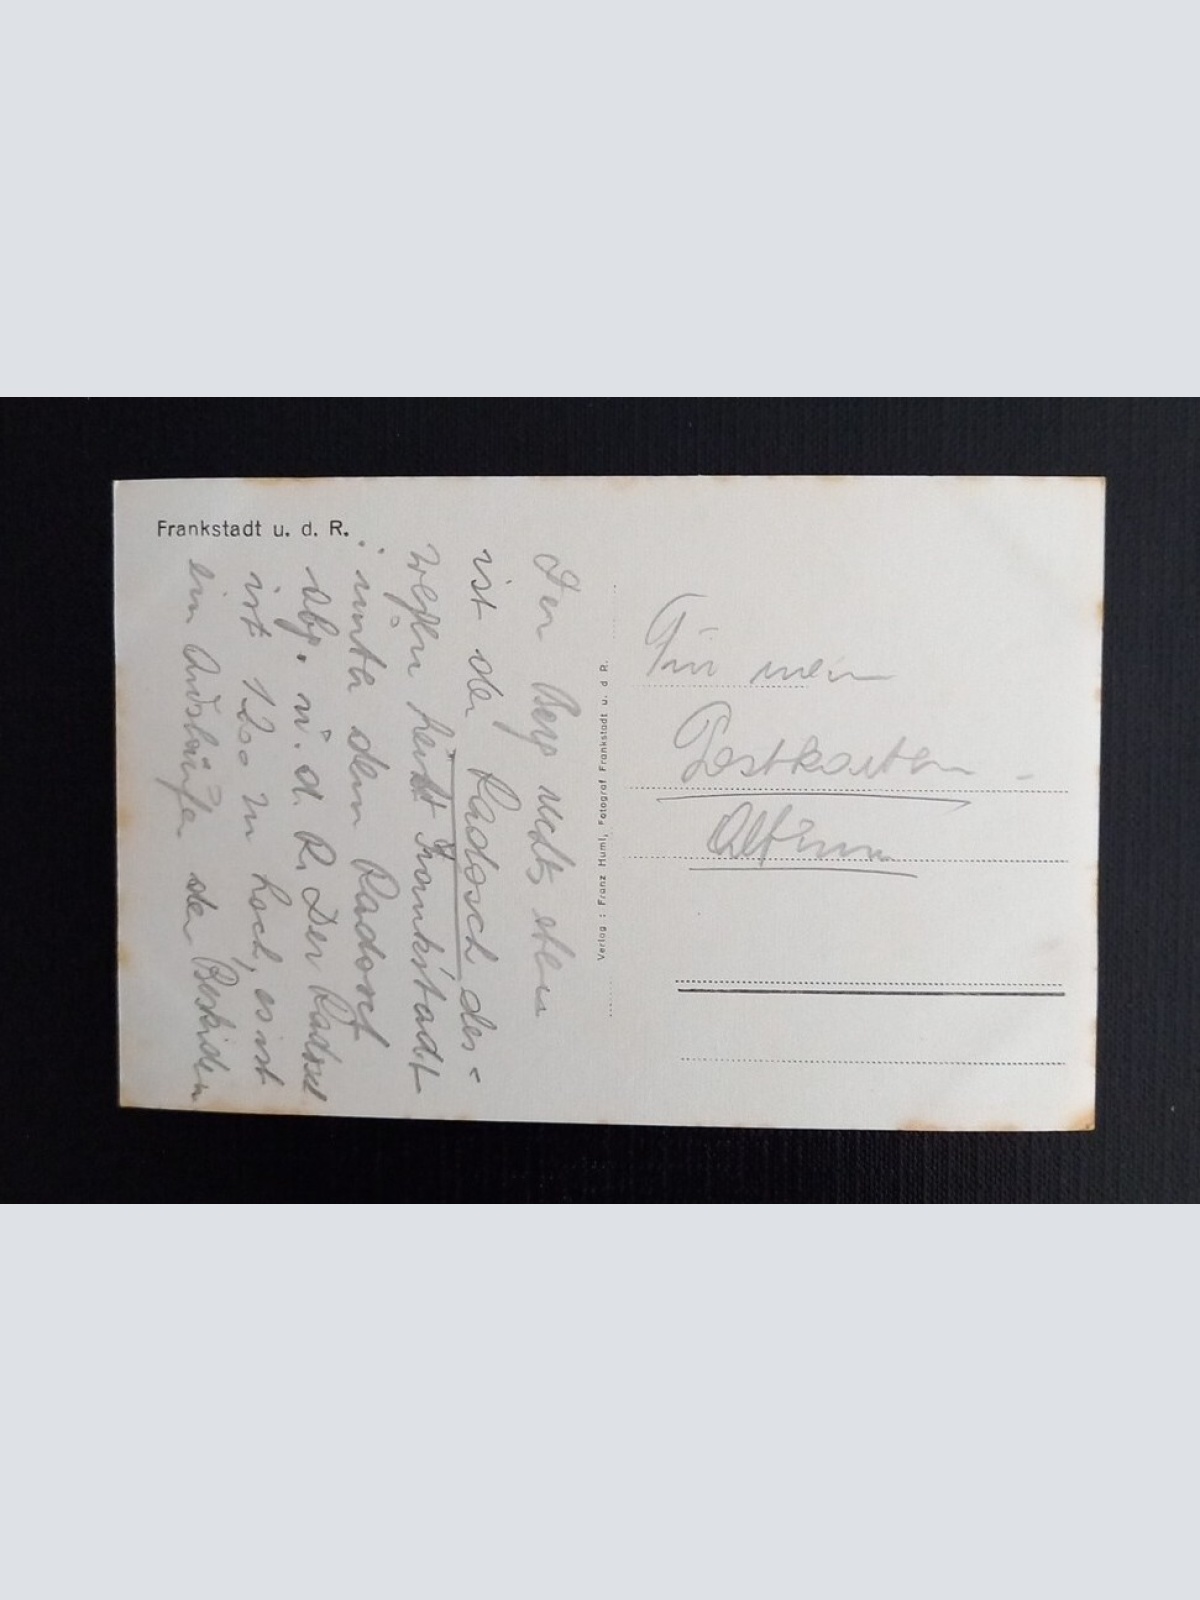 Frankstadt u. d. R.
Der Berg rechts oben
ist der Radosch des=
wegen heißt Frankstadt
unter dem Radosch
abg. u. d. R. Der Radosch
ist 1200 m hoch, es ist
ein Ausläufer der Beskiden
Verlag : Franz Huml, Fotograf Frankstadt u. d R.
Für mein
Postkarten-
Album